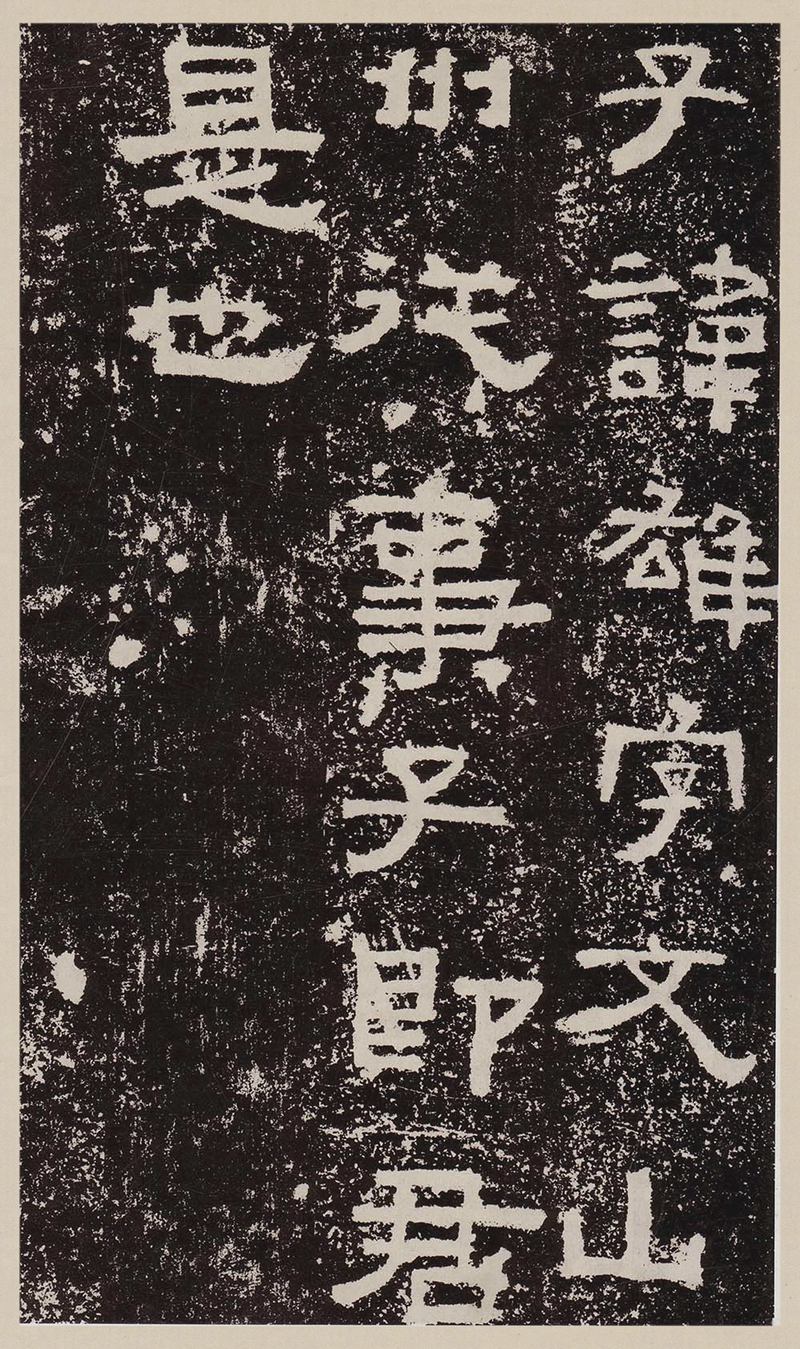 子諱雄字文山
州從事子即君
是也